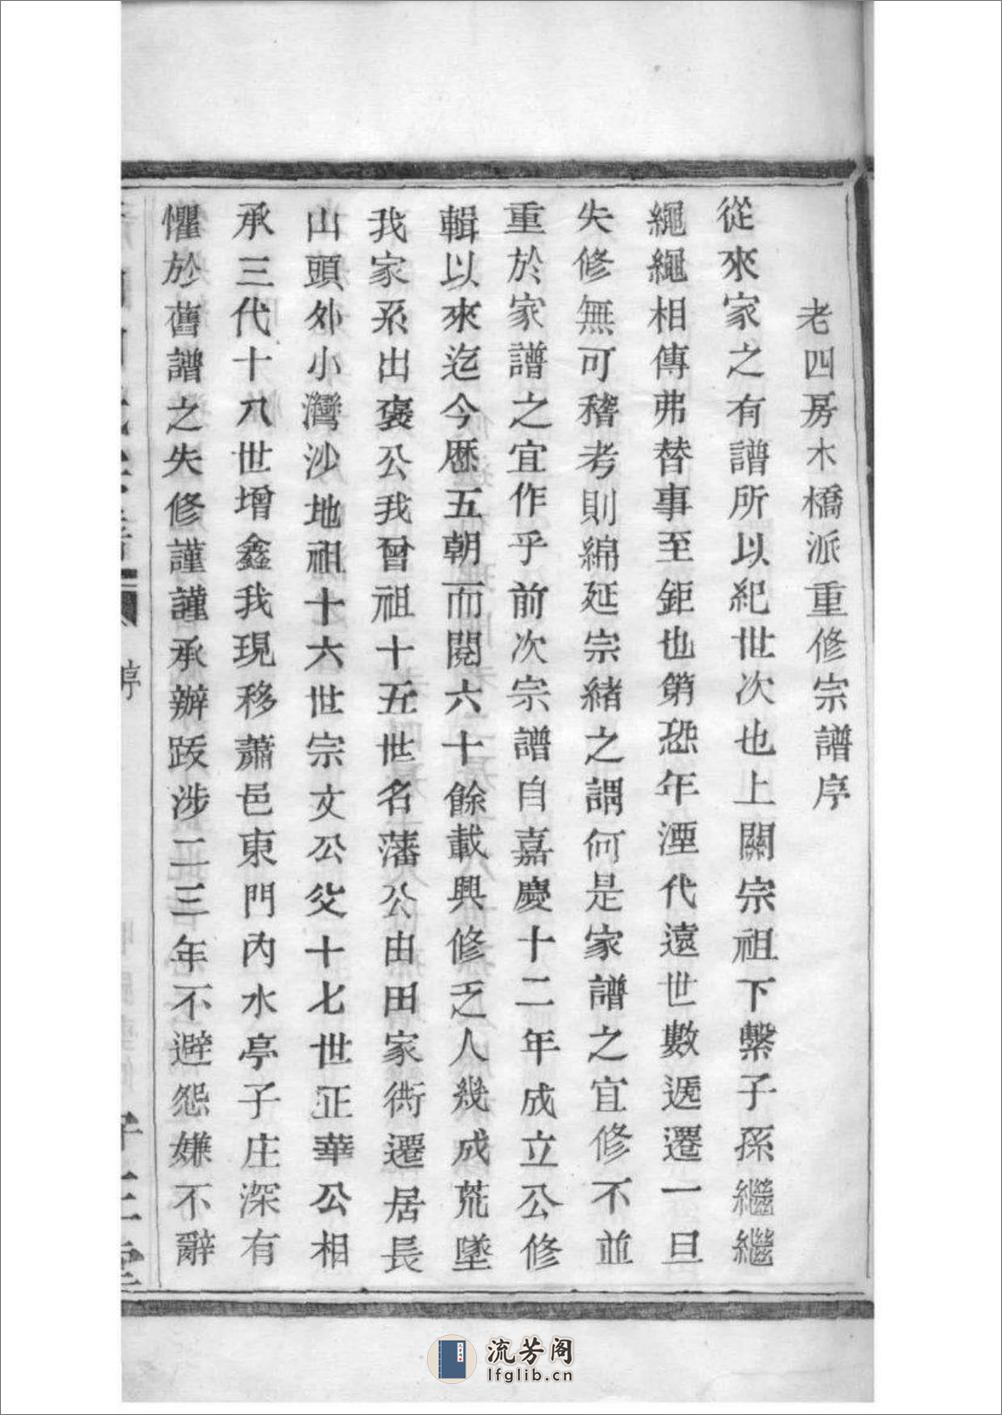 老四房木橋派重修宗譜序
從來家之有譜所以紀世次也上關宗祖下繫子孫繼繼
繩繩相傳弗替事至鉅也第恐年湮代遠世數遞遷一旦
失修無可稽考則綿延宗緒之謂何是家譜之宜修不並
重於家譜之宜作乎前次宗譜自嘉慶十二年成立公修
輯以來迄今歷五朝而閱六十餘載興修乏人幾成荒墜
我家系出褒公我曾祖十五世名藩公由田家衖遷居長
山頭外小灣沙地祖十六世宗文公父十七世正華公相
承三代十八世增鑫我現移蕭邑東門內水亭子庄深有
懼於舊譜之失修謹謹承辦跋涉二三年不避怨嫌不辭
序
流芳阁
lfglib.cn